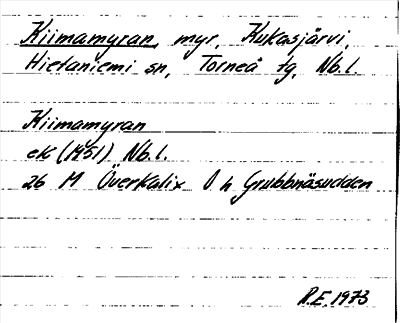 Kiimamyran, myr, Kukasjärvi,
Hietaniemi sn, Torneå tg, Nb.l.
Kiimamyran
ek (1951) Nb.l.
26 M Överkalix O h Grubbnäsudden
R.E. 1973